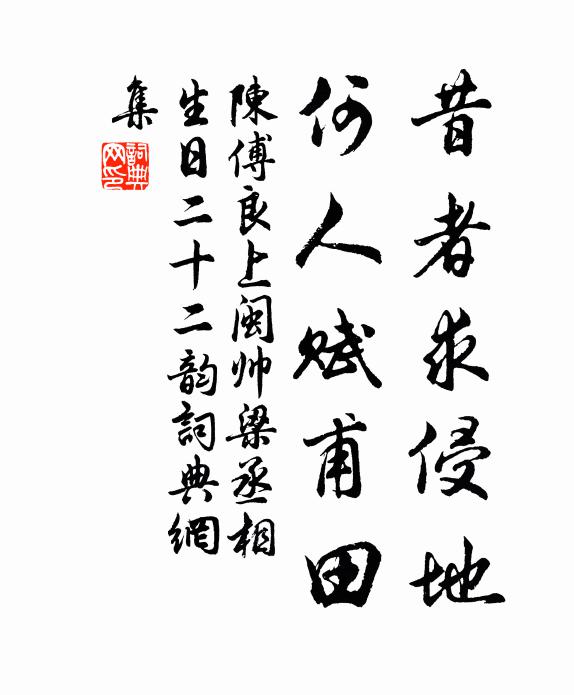 昔者求侵地
何人赋甫田
陳傅良上闽帅梁丞相
生日二十二韵詞典網
集
詞典网印